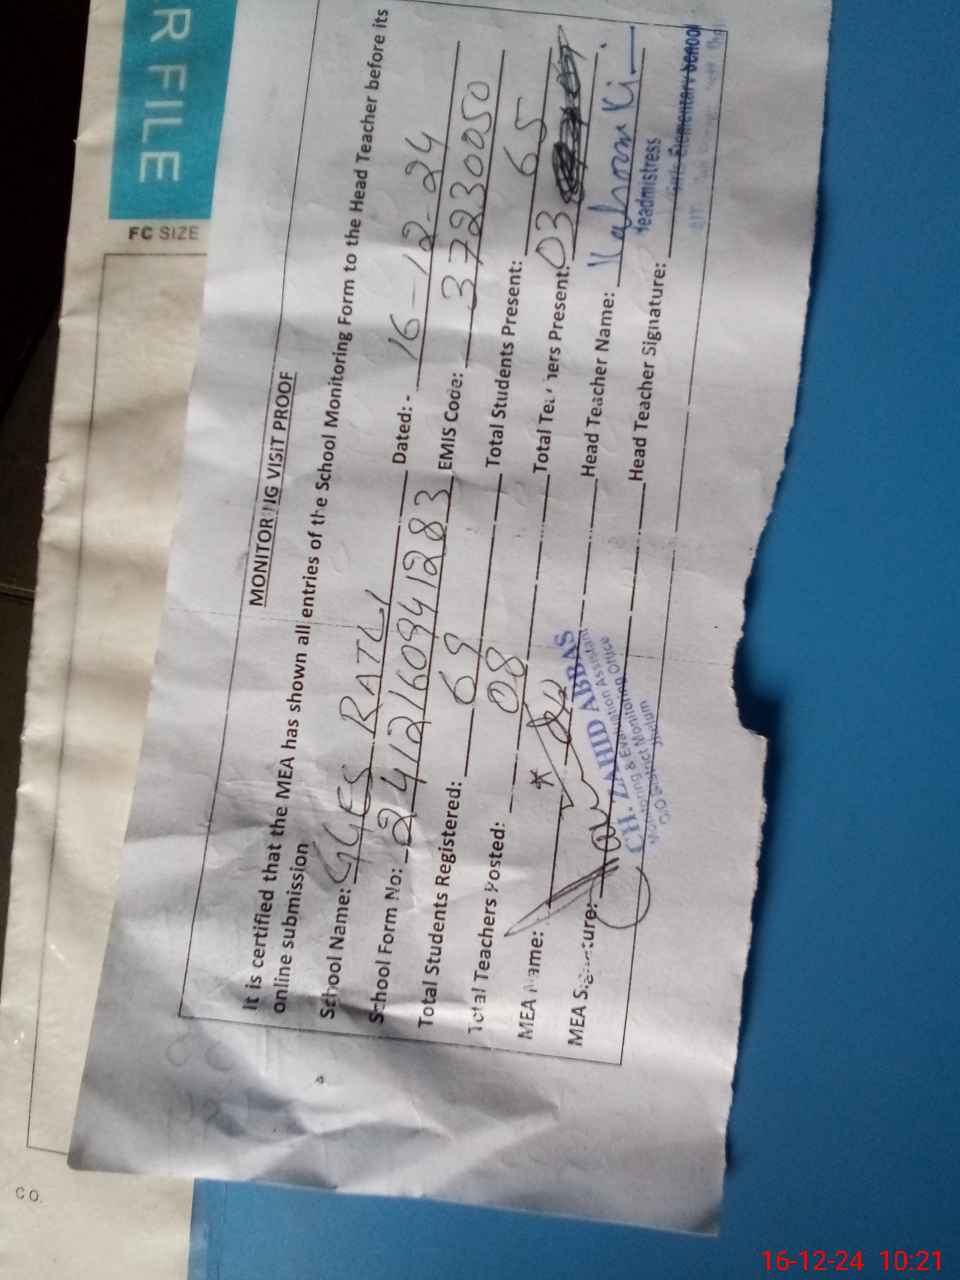 R FILE
FC SIZE
CO.
MONITORING VISIT PROOF
It is certified that the MEA has shown all entries of the School Monitoring Form to the Head Teacher before its
online submission
School Name: GGES RATLI Dated: - 16-12-24
School Form No: 2412160941283 EMIS Code: 37230050
Total Students Registered: 69 Total Students Present: 65
Total Teachers Posted: 08 Total Teachers Present: 03
MEA Name: Head Teacher Name:
MEA Signature: Head Teacher Signature:
CH. ZAHID ABBAS
Monitoring & Evaluation Assistant
O/O District Monitoring Office
Jhelum
Headmistress
Girls Elementary School
16-12-24 10:21